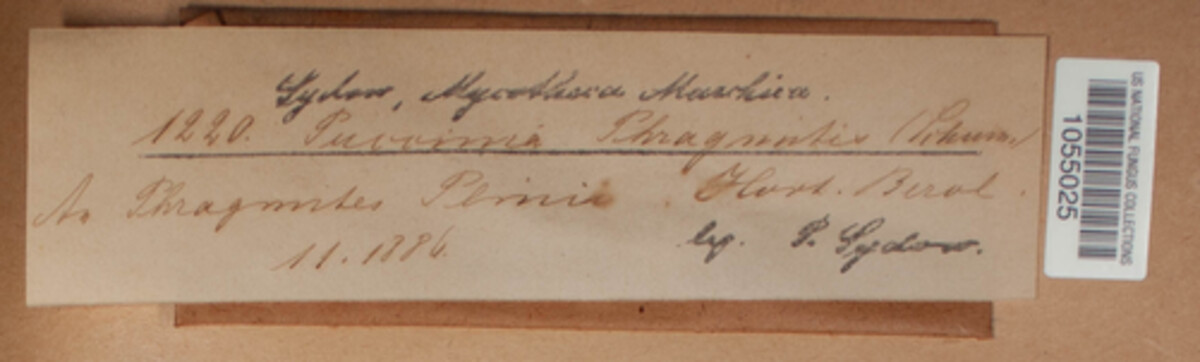 Sydow, Mycotheca Marchica.
1220. Puccinia Phragmitis (Schum.)
An Phragmites Plinii. Hort. Berol.
11. 1886.
leg. P. Sydow.
US NATIONAL FUNGUS COLLECTIONS
1055025